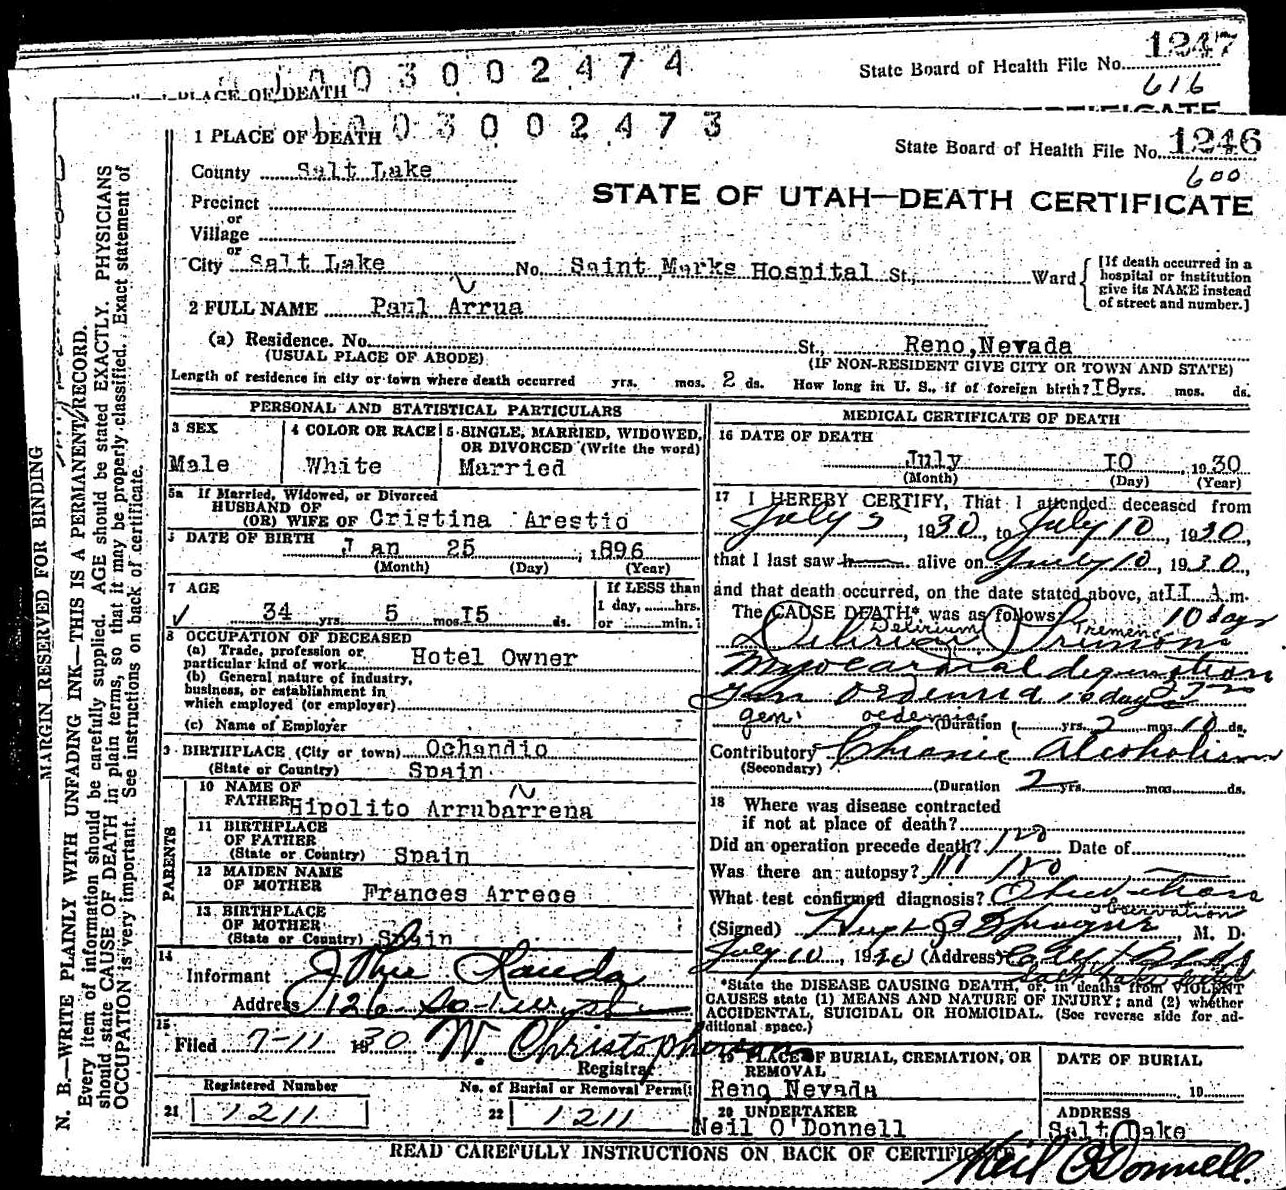 1247
1003002474
State Board of Health File No.
616
PLACE OF DEATH
1003002473
1 PLACE OF DEATH
State Board of Health File No. 1246
600
County Salt Lake
STATE OF UTAH—DEATH CERTIFICATE
Precinct
or
Village
or
City Salt Lake No. Saint Marks Hospital St., Ward
[If death occurred in a hospital or institution give its NAME instead of street and number.]
2 FULL NAME Paul Arrua
(a) Residence. No. St., Reno, Nevada
(USUAL PLACE OF ABODE) (IF NON-RESIDENT GIVE CITY OR TOWN AND STATE)
Length of residence in city or town where death occurred yrs. mos. 2 ds. How long in U. S., if of foreign birth? 18 yrs. mos. ds.
PERSONAL AND STATISTICAL PARTICULARS
3 SEX
Male
4 COLOR OR RACE
White
5 SINGLE, MARRIED, WIDOWED, OR DIVORCED (Write the word)
Married
5a If Married, Widowed, or Divorced
HUSBAND OF
(OR) WIFE OF Cristina Arestio
DATE OF BIRTH Jan 25, 1896
(Month) (Day) (Year)
7 AGE
34 yrs. 5 mos. 15 ds.
If LESS than
1 day, hrs.
or min.
8 OCCUPATION OF DECEASED
(a) Trade, profession or particular kind of work Hotel Owner
(b) General nature of industry, business, or establishment in which employed (or employer)
(c) Name of Employer
9 BIRTHPLACE (City or town) Ochandio
(State or Country) Spain
PARENTS
10 NAME OF FATHER Hipolito Arrubarrena
11 BIRTHPLACE OF FATHER
(State or Country) Spain
12 MAIDEN NAME OF MOTHER Frances Arrece
13 BIRTHPLACE OF MOTHER
(State or Country) Spain
14
Informant
Address 126 So
15
Filed 7-11 1930 W. Christopherson
Registrar
Registered Number
21 1211
No. of Burial or Removal Permit
22 1211
MEDICAL CERTIFICATE OF DEATH
16 DATE OF DEATH
July 10 1930
(Month) (Day) (Year)
17 I HEREBY CERTIFY, That I attended deceased from
July 5, 1930, to July 10, 1930,
that I last saw h alive on July 10, 1930,
and that death occurred, on the date stated above, at 11 A.m.
The CAUSE DEATH* was as follows: 10 days
Delirium Tremens
Delirium Trimons
Myocarnal degenation
Gen Oedenia 10 days
gen. oedema (Duration yrs. 2 mos. 10 ds.
Contributory Chronic Alcoholism
(Secondary)
(Duration 2 yrs. mos. ds.
18 Where was disease contracted
if not at place of death?
Did an operation precede death? no Date of
Was there an autopsy? no
What test confirmed diagnosis? Observation
observation
(Signed) Hugh B Sprague, M. D.
July 10, 1930 (Address)
Salt Lake
*State the DISEASE CAUSING DEATH, or, in deaths from VIOLENT CAUSES state (1) MEANS AND NATURE OF INJURY; and (2) whether ACCIDENTAL, SUICIDAL OR HOMICIDAL. (See reverse side for additional space.)
19 PLACE OF BURIAL, CREMATION, OR REMOVAL
Reno Nevada
DATE OF BURIAL
19
20 UNDERTAKER
Neil O'Donnell
ADDRESS
Salt Lake
READ CAREFULLY INSTRUCTIONS ON BACK OF CERTIFICATE
Neil O'Donnell.
MARGIN RESERVED FOR BINDING
N. B.—WRITE PLAINLY WITH UNFADING INK—THIS IS A PERMANENT RECORD.
Every item of information should be carefully supplied. AGE should be stated EXACTLY. PHYSICIANS
should state CAUSE OF DEATH in plain terms, so that it may be properly classified. Exact statement of
OCCUPATION is very important. See instructions on back of certificate.